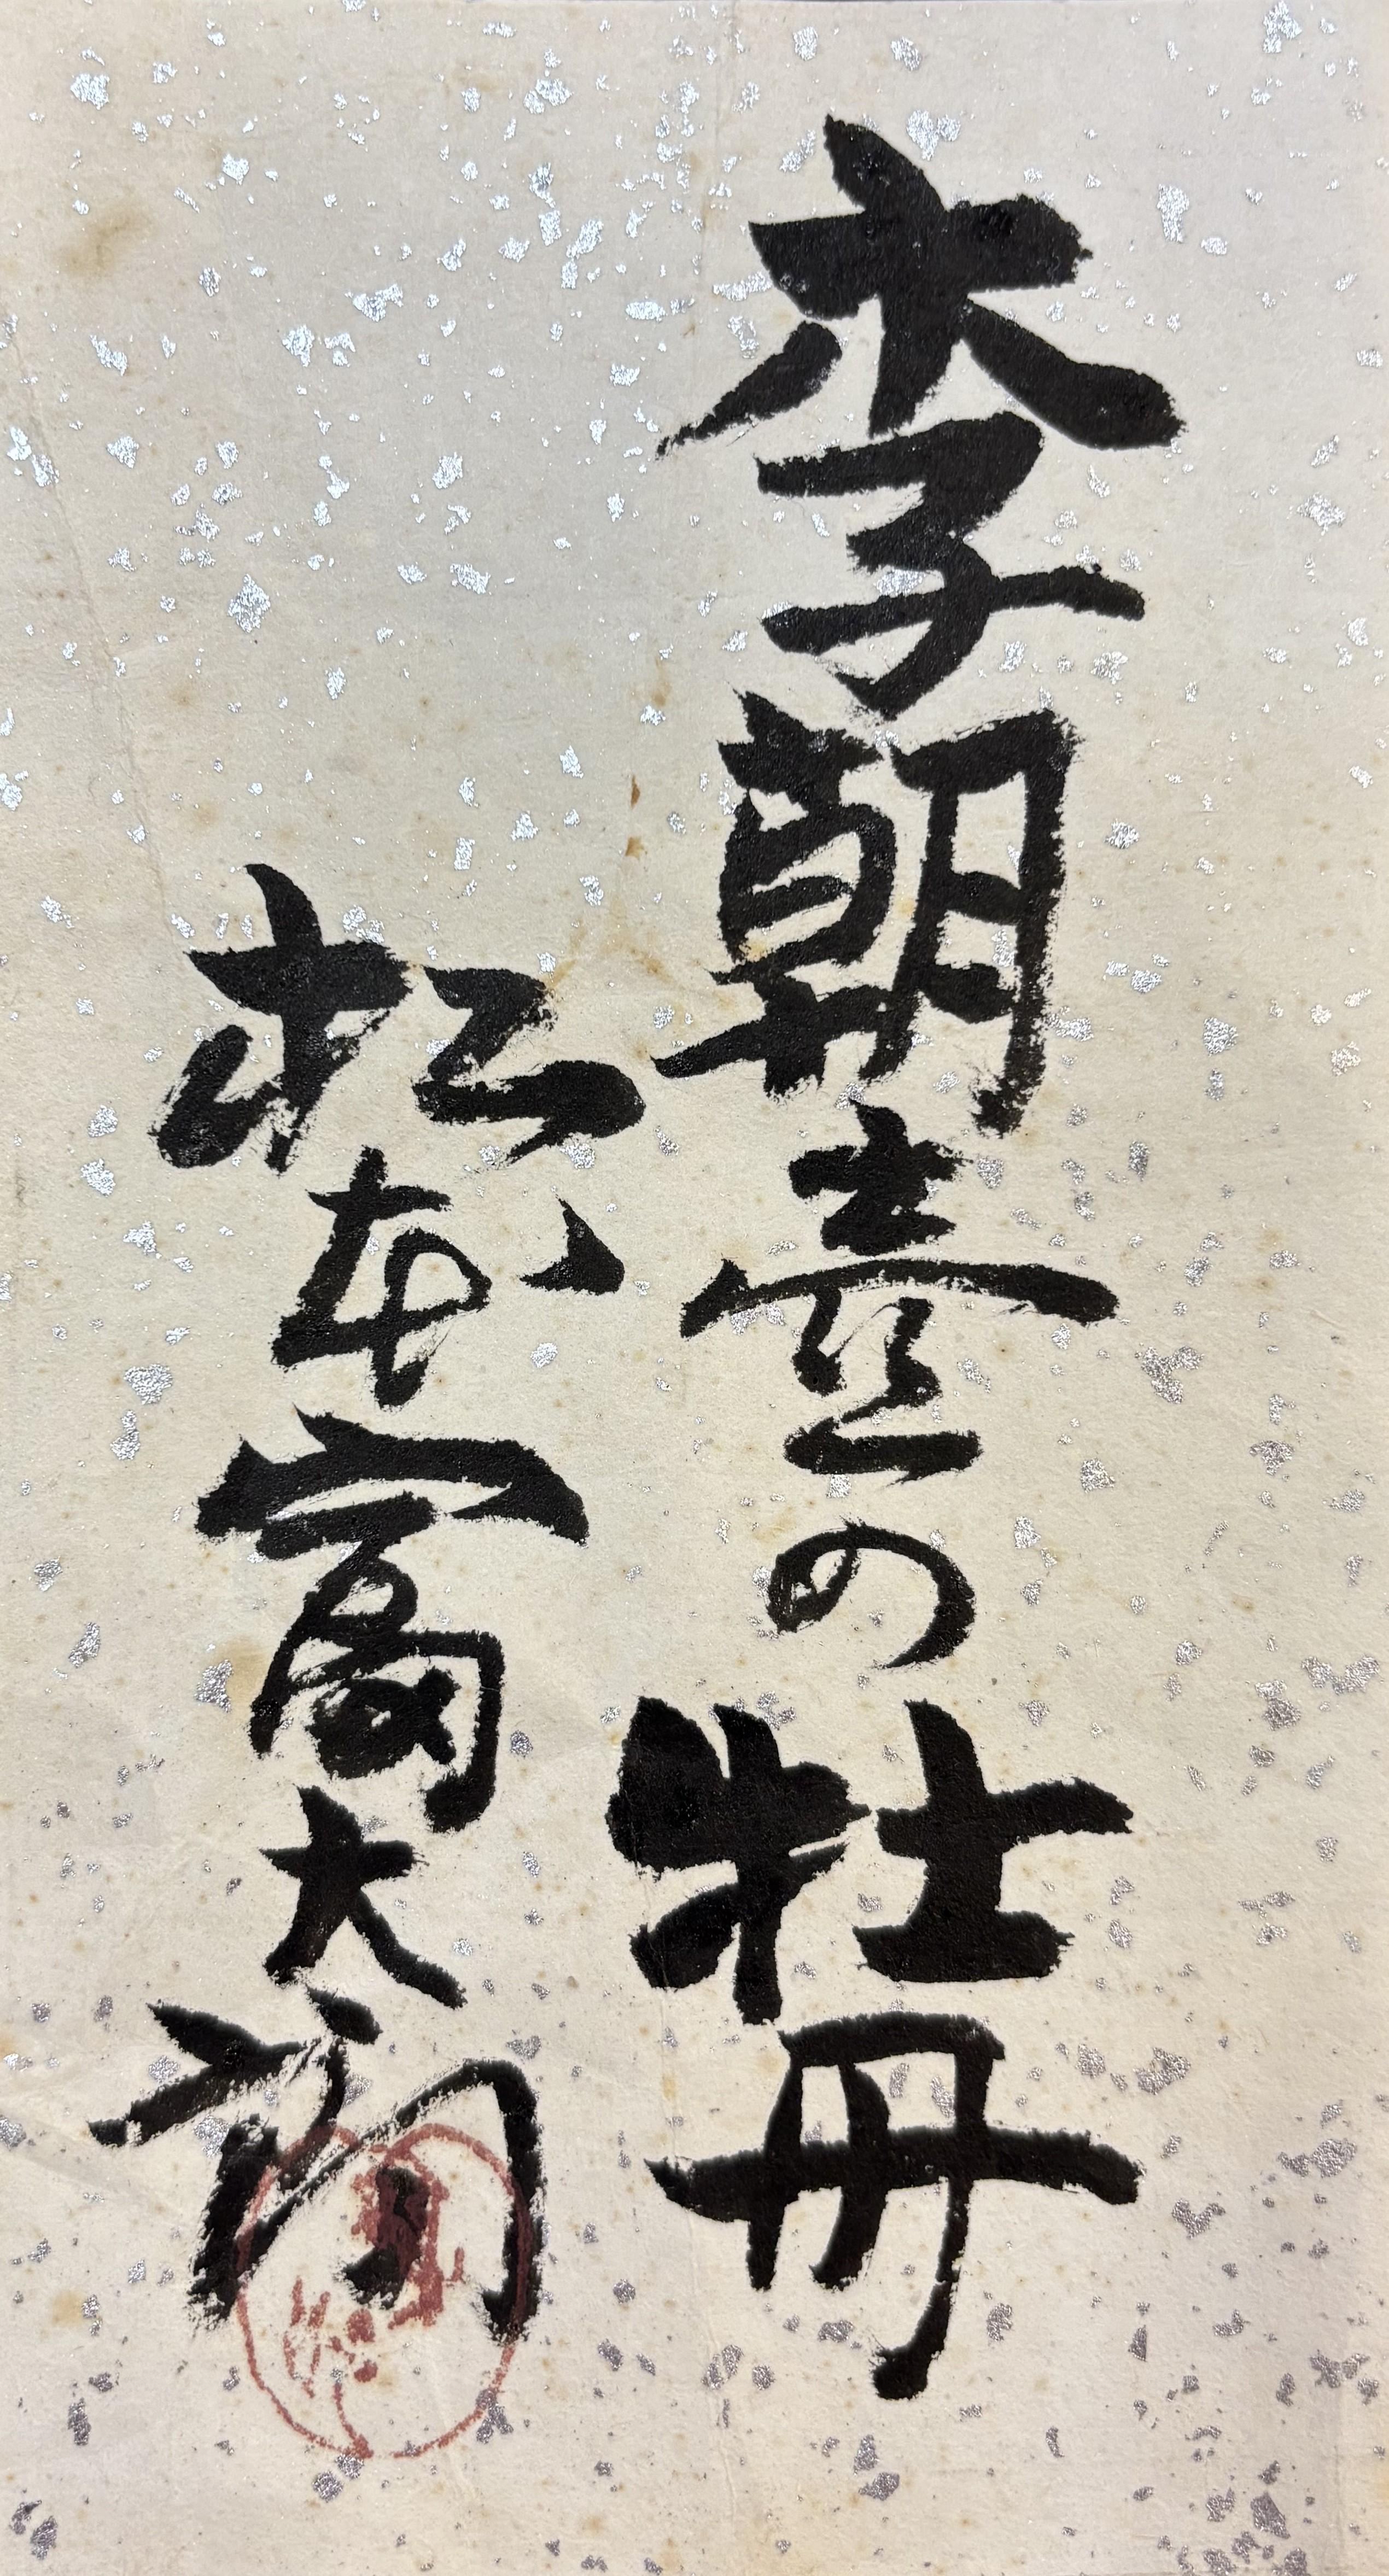 李朝壷の牡丹
松本富太郎